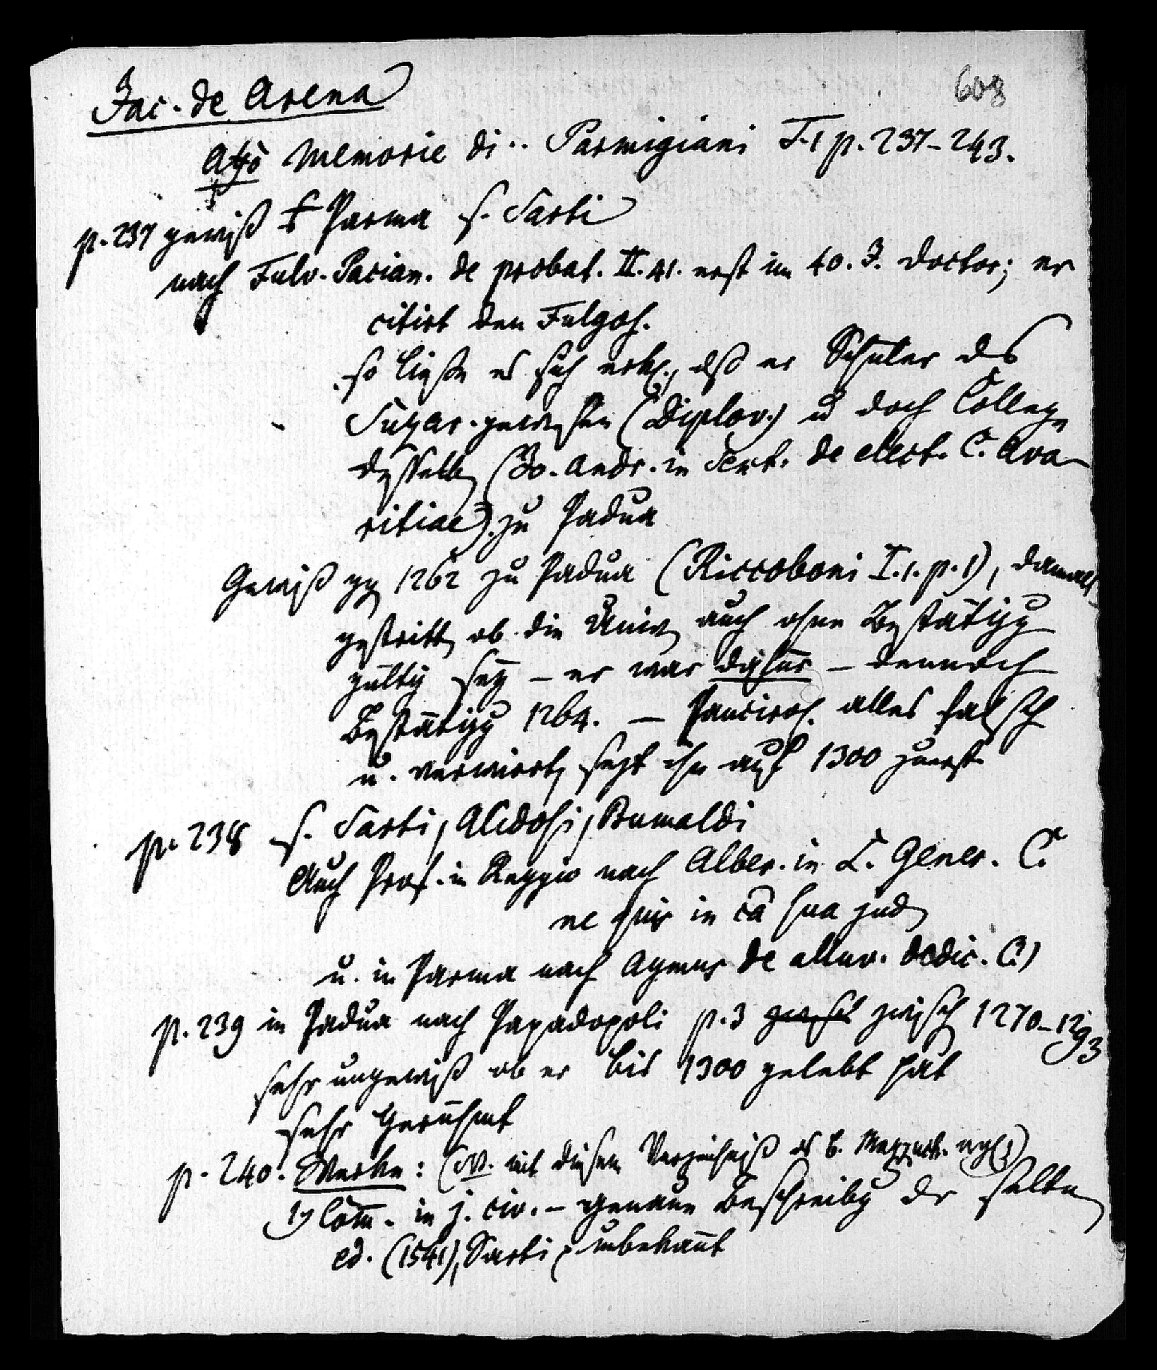 Jac. de Arena
608
Affò Memorie di .. Parmigiani T. 1 p. 237-243.
p. 237 gewiß Parma s. Sarti
nach Fulv. Pacian. de probat. II. 41. erst im 40. J. Doctor; er
citirt den Fulgos.
so ließe es sich erkl., dß er Schüler des
Suzar. gewesen (Diplov.) u doch Colleg
desselb (Jo. Andr. in Sext. de elect. C. Ava-
ritiae) zu Padua
Gewiß 1262 zu Padua (Riccoboni I. 1. p. 1), damals
gestritt ob die Univ auch ohne Bestätigg
gültig sey - er war dafür - dennoch
Bestätigg 1264. - Panzirol. alles falsch
u. verwirrt, setzt ihn auf 1300 zuerst
p. 238 s. Sarti, Alidosi, Bumaldi
Auch Prof. in Reggio nach Alber. in L. Gener. C.
ne quis in cā sua jud
u. in Parma nach Aymus de alluv. dedic. C.)
p. 239 in Padua nach Papadopoli p. 3 zwisch 1270-1293
sehr ungewiß ob er bis 1300 gelebt hat
sehr berühmt
p. 240. Werke: (NB. mit diesem Verzeichniß b. Mazzuch. vgl.)
1) Com̄. in j. civ. - genaue Beschreibg der selten
ed. (1541), Sarti unbekan̄t